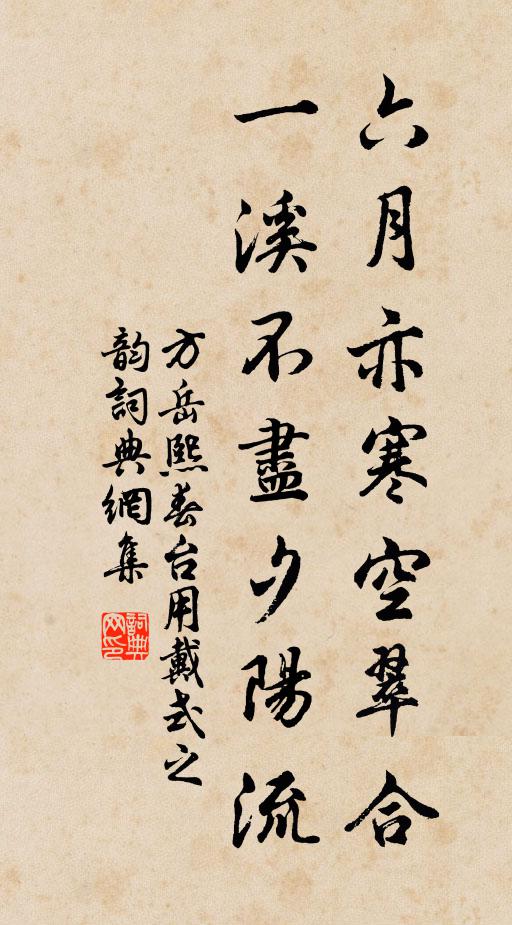 六月亦寒空翠合
一溪不盡夕陽流
方岳熙春台用戴式之
韵詞典網集
詞典网印